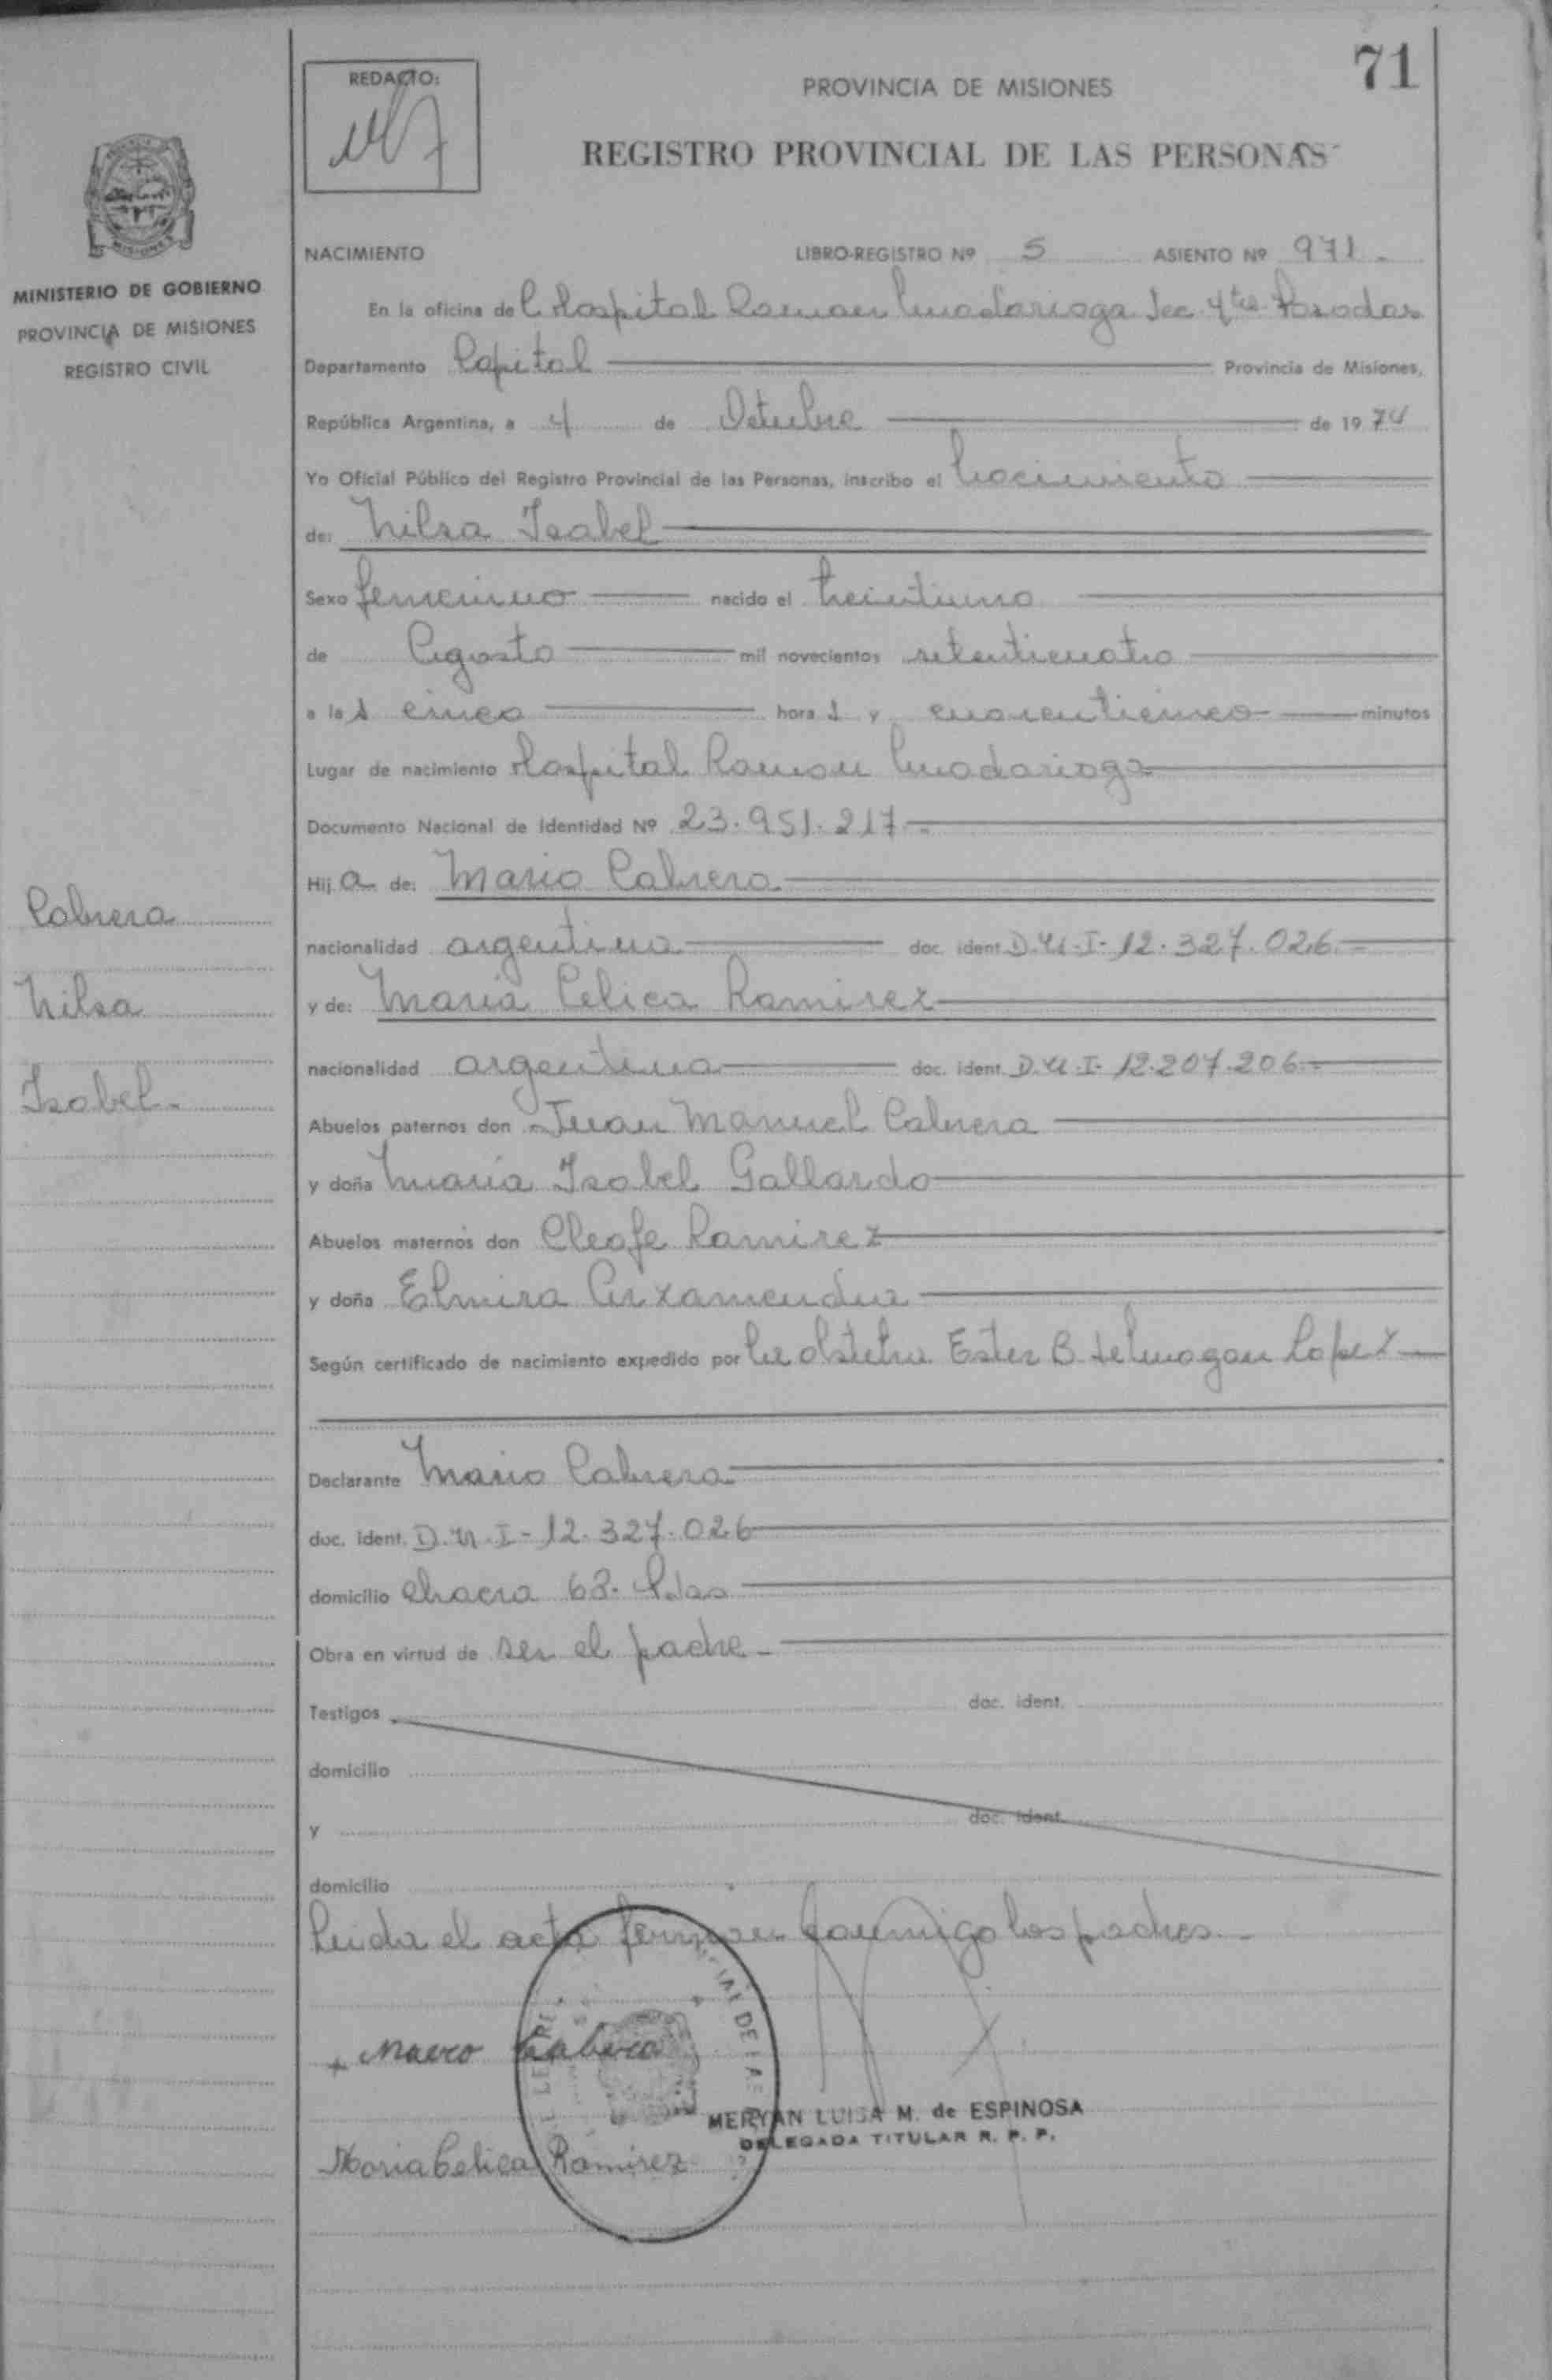 71
REDACTO:
PROVINCIA DE MISIONES
REGISTRO PROVINCIAL DE LAS PERSONAS
MISIONES
MINISTERIO DE GOBIERNO
PROVINCIA DE MISIONES
REGISTRO CIVIL
NACIMIENTO LIBRO-REGISTRO Nº 5 ASIENTO Nº 971.
En la oficina del Hospital Ramon Madariaga Sec. 4ta. Posadas
Departamento Capital Provincia de Misiones,
República Argentina, a 4 de Octubre de 1974
Yo Oficial Público del Registro Provincial de las Personas, inscribo el Nacimiento
de: Nilsa Isabel
Sexo femenino nacido el treintiuno
de Agosto mil novecientos setenticuatro
a las cinco horas y cuarenticinco minutos
Lugar de nacimiento Hospital Ramon Madariaga
Documento Nacional de Identidad Nº 23.951.217.
Hija de: Mario Cabrera
nacionalidad argentina doc. ident. D.N.I- 12.327.026.
y de: Maria Celica Ramirez
nacionalidad argentina doc. ident. D.N.I- 12.207.206.
Abuelos paternos don Juan Manuel Cabrera
y doña Maria Isabel Gallardo
Abuelos maternos don Cleofe Ramirez
y doña Elmira
Según certificado de nacimiento expedido por la obstetra Ester B. Lopez
Declarante Mario Cabrera
doc. ident. D.N.I- 12.327.026
domicilio chacra 63. Pdas
Obra en virtud de ser el padre.
Testigos doc. ident.
domicilio
y doc. ident.
domicilio
Leida el acta firman conmigo los padres.
Cabrera
Nilsa
Isabel.
Mario Cabrera
MERYAN LUISA M. de ESPINOSA
DELEGADA TITULAR R. P. P.
Maria Celica Ramirez